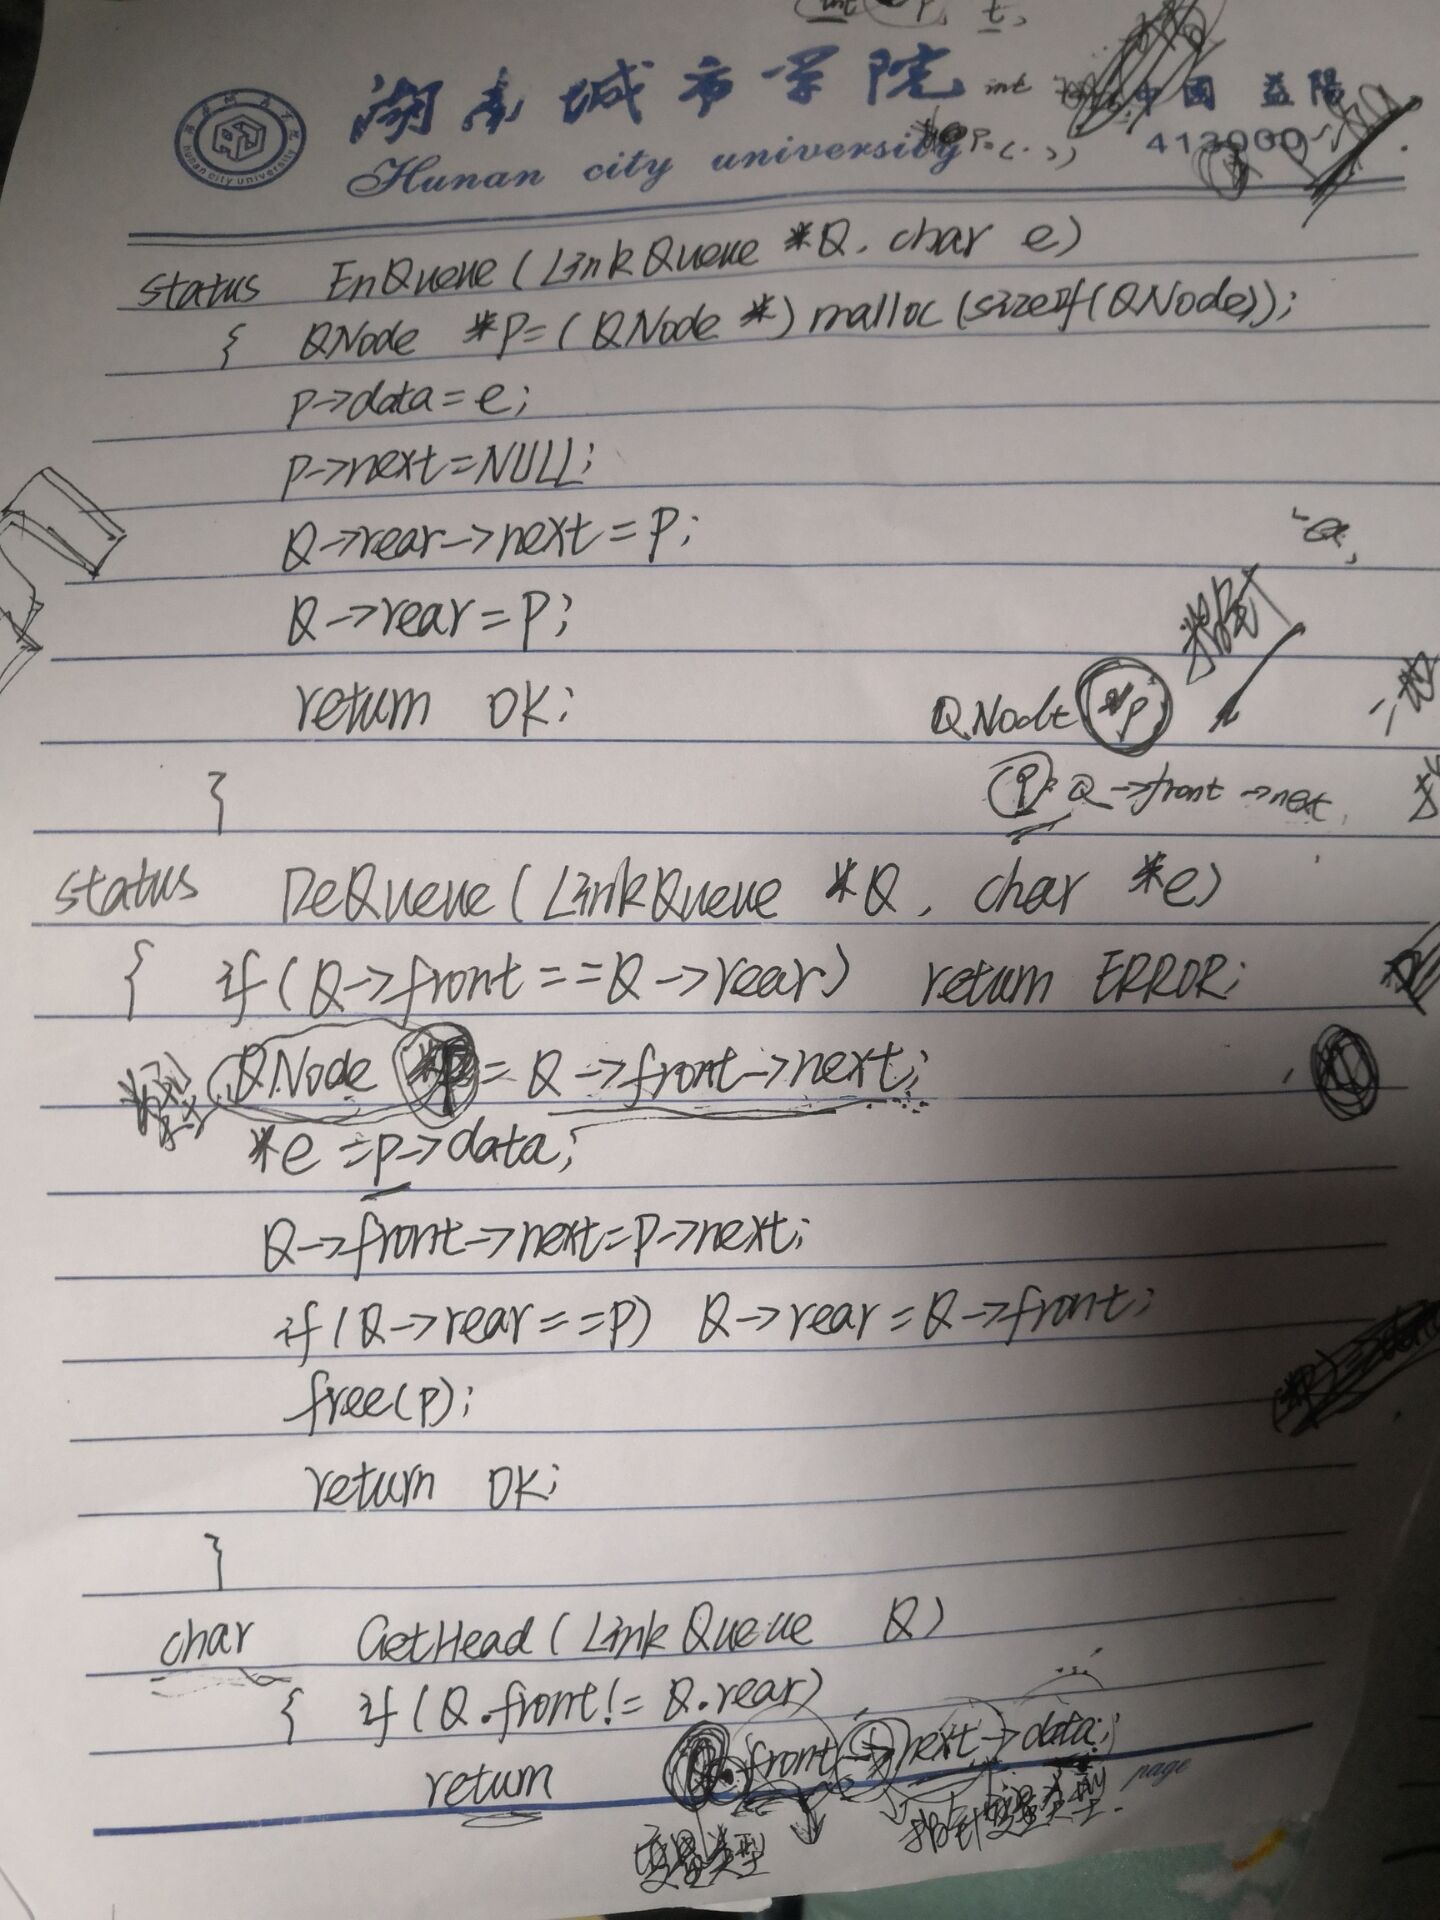 int P, t,
湖南城市学院 int 中國 益陽
Hunan city university 413000
status EnQueue(LinkQueue *Q, char e)
{ QNode *P=(QNode *)malloc(sizeof(QNode));
p->data=e;
p->next=NULL;
Q->rear->next=P;
Q->rear=P;
return OK;
QNode *p
}
Q->front->next
status DeQueue(LinkQueue *Q, char *e)
{ if(Q->front==Q->rear) return ERROR;
QNode *p=Q->front->next;
*e=p->data;
Q->front->next=P->next;
if(Q->rear==p) Q->rear=Q->front;
free(p);
return OK;
}
char GetHead(LinkQueue Q)
{ if(Q.front!=Q.rear)
return Q.front->next->data;
page
变量类型 指针变量类型.